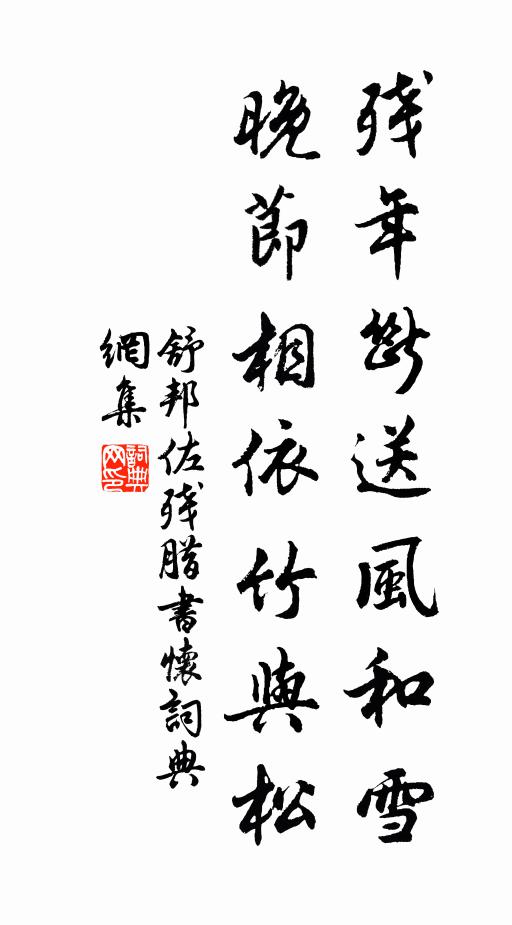 残年断送風和雪
晚節相依竹與松
舒邦佐残腊書懷詞典
網集
詞典
网印